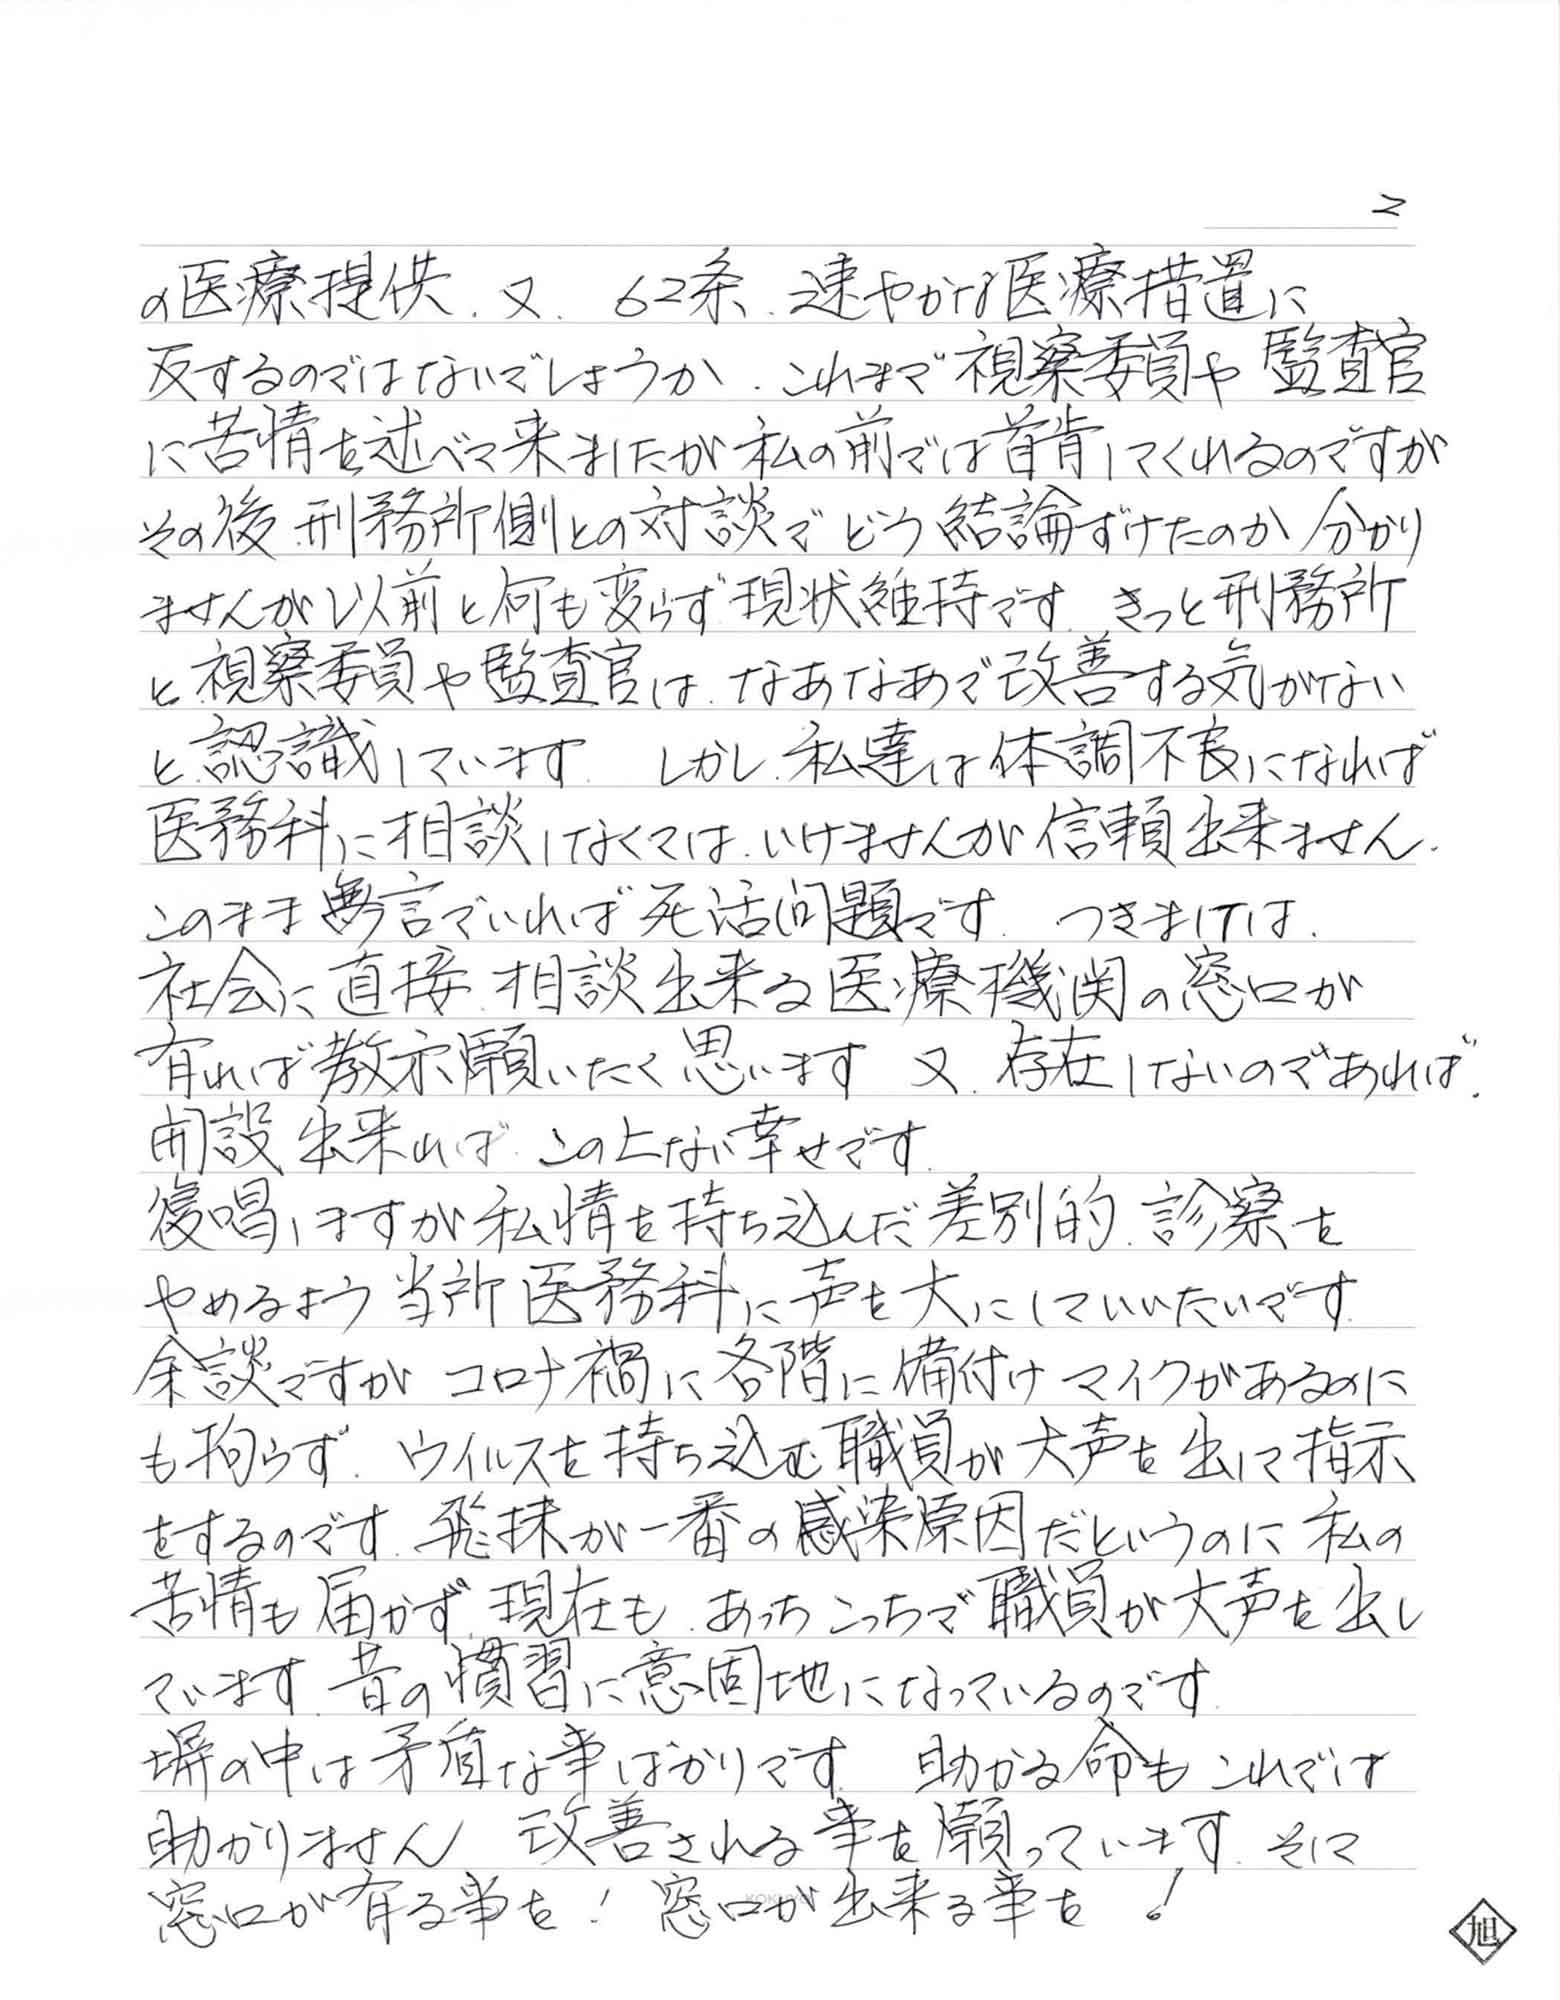 2
の医療提供、又、62条、速やかな医療措置に
反するのではないでしょうか、これまで視察委員や監査官
に苦情を述べて来ましたが私の前では首肯してくれるのですが
その後、刑務所側との対談でどう結論ずけたのか分かり
ませんが以前と何も変らず現状維持です。きっと刑務所
と視察委員や監査官は、なあなあで改善する気がない
と認識しています。しかし、私達は体調不良になれば
医務科に相談しなくては、いけませんが信頼出来ません。
このまま無言でいれば死活問題です。つきましては、
社会に直接、相談出来る医療機関の窓口が
有れば教示願いたく思います。又、存在しないのであれば、
開設出来れば、この上ない幸せです。
復唱しますが私情を持ち込んだ差別的、診察を
やめるよう当所医務科に声を大にしていいたいです。
余談ですがコロナ禍に各階に備付けマイクがあるのに
も拘らず、ウイルスを持ち込む職員が大声を出して指示
をするのです。飛抹が一番の感染原因だというのに私の
苦情も届かず、現在も、あっちこっちで職員が大声を出し
ています。昔の慣習に意固地になっているのです。
塀の中は矛盾な事ばかりです。助かる命もこれでは
助かりません 改善される事を願っています。そして
窓口が有る事を！窓口が出来る事を！
KOKUYO
旭